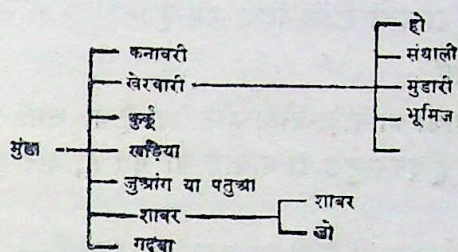 मुंडा
कनावरी
खेरवारी
कुर्कू
खड़िया
जुआंग या पतुआ
शाबर
गदबा
हो
संथाली
मुडारी
भूमिज
शाबर